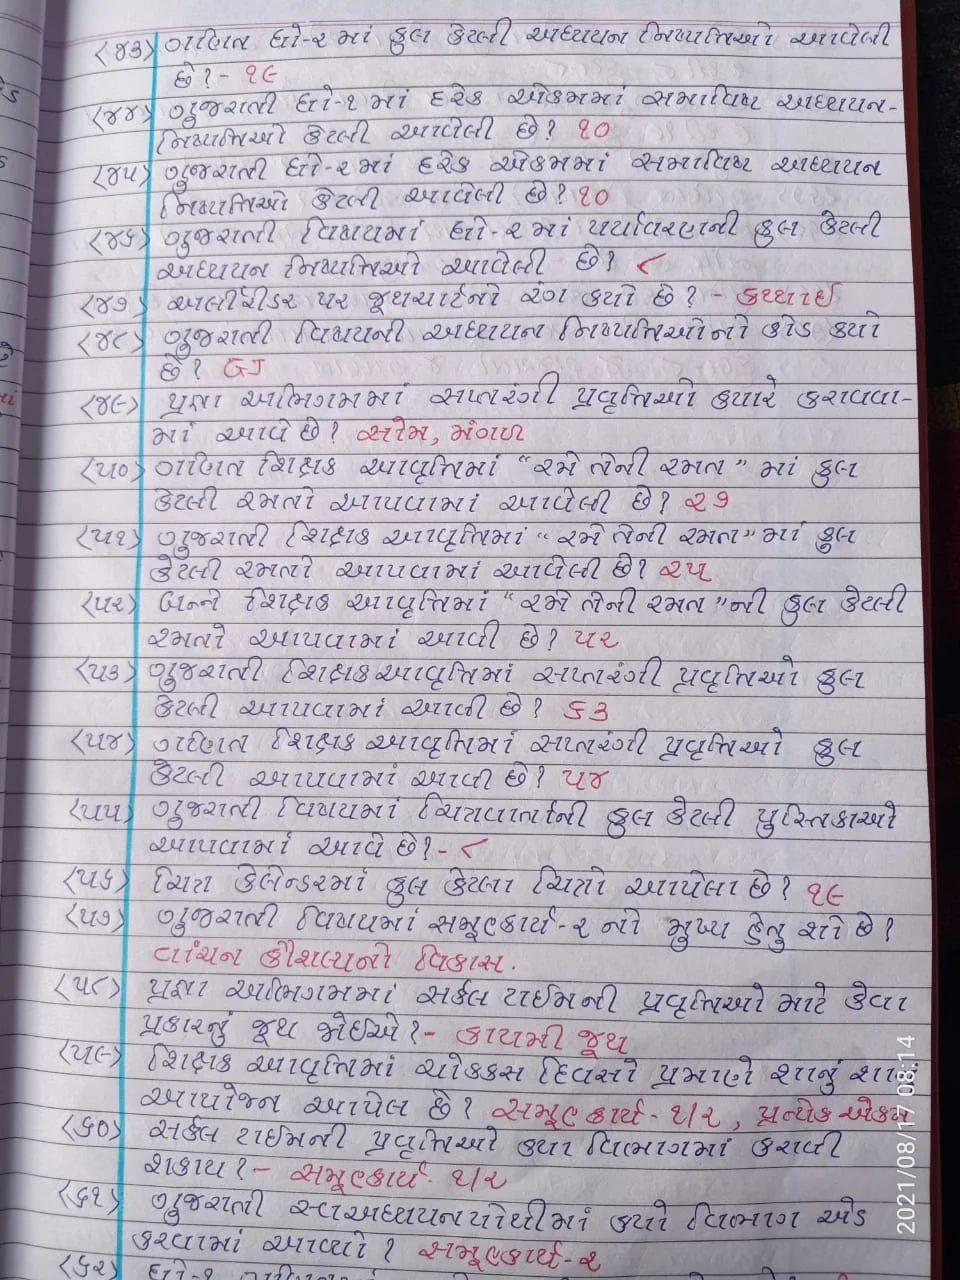 (૪૩) ગણિત ધો-૨ માં કુલ કેટલી અધ્યયન નિષ્પત્તિઓ આવેલી
છે? - ૧૯
(૪૪) ગુજરાતી ધો-૧ માં દરેક એકમમાં સમાવિષ્ટ અધ્યયન-
નિષ્પત્તિઓ કેટલી આવેલી છે? ૧૦
(૪૫) ગુજરાતી ધો-૨માં દરેક એકમમાં સમાવિષ્ટ અધ્યયન
નિષ્પત્તિઓ કેટલી આવેલી છે? ૧૦
(૪૬) ગુજરાતી વિષયમાં ધો-૨ માં પર્યાવરણની કુલ કેટલી
અધ્યયન નિષ્પત્તિઓ આવેલી છે? ૮
(૪૭) અલીરીડર પર જૂથચાર્ટનો રંગ કયો છે? - કથ્થાઈ
(૪૮) ગુજરાતી વિષયની અધ્યયન નિષ્પત્તિઓનો કોડ કયો
છે? GJ
(૪૯) પ્રજ્ઞા અભિગમમાં સપ્તરંગી પ્રવૃત્તિઓ ક્યારે કરાવવા-
માં આવે છે? સોમ, મંગળ
(૫૦) ગણિત શિક્ષક આવૃત્તિમાં “રમે તેની રમત” માં કુલ
કેટલી રમતો આપવામાં આવેલી છે? ૨૭
(૫૧) ગુજરાતી શિક્ષક આવૃત્તિમાં “રમે તેની રમત” માં કુલ
કેટલી રમતો આપવામાં આવેલી છે? ૨૫
(૫૨) બન્ને શિક્ષક આવૃત્તિમાં “રમે તેની રમત”ની કુલ કેટલી
રમતો આપવામાં આવી છે? ૫૨
(૫૩) ગુજરાતી શિક્ષક આવૃત્તિમાં સપ્તરંગી પ્રવૃત્તિઓ કુલ
કેટલી આપવામાં આવી છે? ૬૩
(૫૪) ગણિત શિક્ષક આવૃત્તિમાં સપ્તરંગી પ્રવૃત્તિઓ કુલ
કેટલી આપવામાં આવી છે? ૫૪
(૫૫) ગુજરાતી વિષયમાં ચિત્રવાર્તાની કુલ કેટલી પુસ્તિકાઓ
આપવામાં આવે છે? - ૮
(૫૬) ચિત્ર કેલેન્ડરમાં કુલ કેટલા ચિત્રો આપેલા છે? ૧૯
(૫૭) ગુજરાતી વિષયમાં સમૂહકાર્ય-૨ નો મુખ્ય હેતુ શો છે?
વાંચન કૌશલ્યનો વિકાસ.
(૫૮) પ્રજ્ઞા અભિગમમાં સર્કલ ટાઈમની પ્રવૃત્તિઓ માટે કેવા
પ્રકારનું જૂથ જોઈએ? - કાયમી જૂથ
(૫૯) શિક્ષક આવૃત્તિમાં ચોક્કસ દિવસો પ્રમાણે શાનું
આયોજન આપેલ છે? સમૂહકાર્ય- ૧/૨, પ્રત્યેક એકમ
(૬૦) સર્કલ ટાઈમની પ્રવૃત્તિઓ કયા વિભાગમાં કરાવી
શકાય? - સમૂહકાર્ય- ૧/૨
(૬૧) ગુજરાતી સ્વઅધ્યયનપોથીમાં કયો વિભાગ એડ
કરવામાં આવ્યો? સમૂહકાર્ય-૨
(૬૨) ધો-૧
2021/08/17 08:14